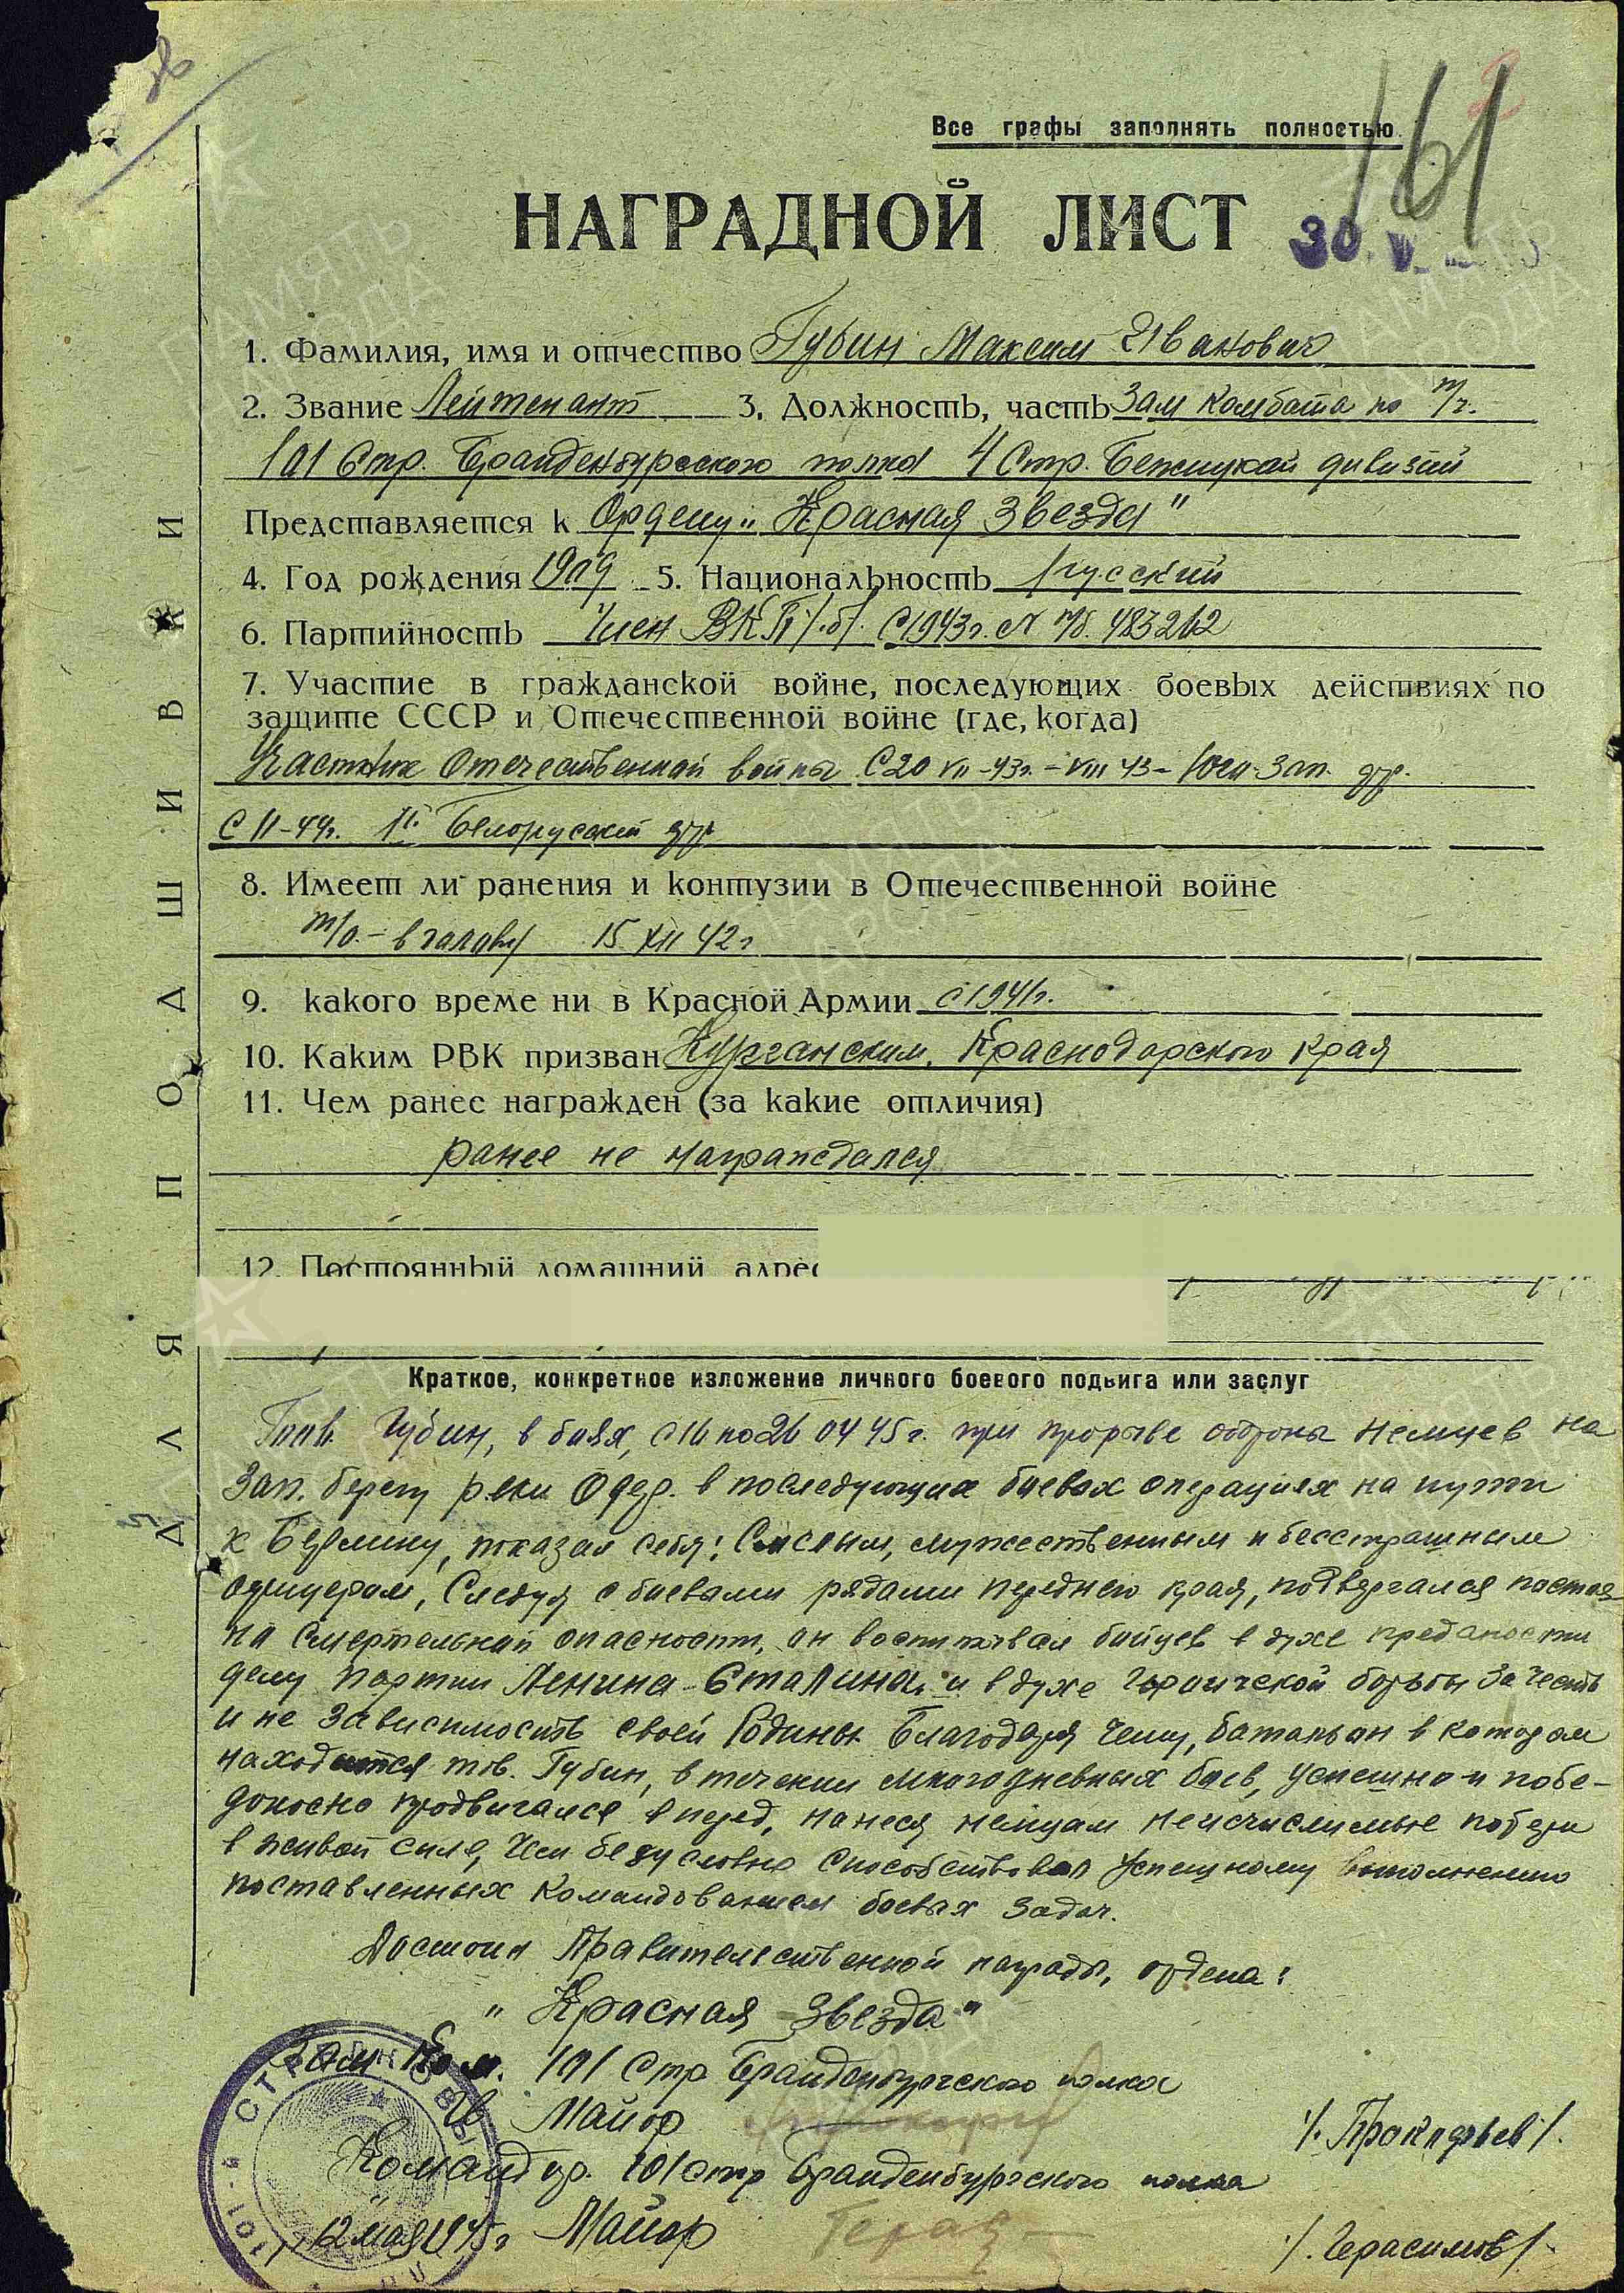 Все графы заполнять полностью
161
НАГРАДНОЙ ЛИСТ
30. V.
1. Фамилия, имя и отчество Губин Максим Иванович
2. Звание Лейтенант 3. Должность, часть Зам комбата по п/ч.
101 Стр. Бранденбургского полка 4 Стр. Бежицкой дивизии
Представляется к Ордену „Красная Звезда"
4. Год рождения 1909 5. Национальность русский
6. Партийность Член ВКП/б/. С 1943г. п/б.
7. Участие в гражданской войне, последующих боевых действиях по
защите СССР и Отечественной войне (где, когда)
Участник Отечественной войны С 20 VII-43г. - VIII 43 - Юго-Зап. фр.
С II-44г. 1й Белорусский фр
8. Имеет ли ранения и контузии в Отечественной войне
в голову 15 XII 42г
9. какого време ни в Красной Армии с 1941г.
10. Каким РВК призван Курганским, Краснодарского края
11. Чем ранее награжден (за какие отличия)
ранее не награждался
12. Постоянный домашний адрес
Краткое, конкретное изложение личного боевого подвига или заслуг
Губин, в боях, с 16 по 26 04 45г. при прорыве обороны немцев на
Зап. берегу реки Одер. в последующих боевых операциях на пути
к Берлину, показал себя: Смелым, мужественным и бесстрашным
офицером, Следуя с боевыми рядами переднего края, подвергался постоя-
но Смертельной опасности, он воспитывал бойцев в духе преданости
делу партии Ленина-Сталина, и в духе героической борьбы за честь
и не зависимость своей Родины. Благодаря чему, батальон в котором
находится тов. Губин, в течении многодневных боев, успешно и побе-
доносно продвигался вперед, нанеся немцам неисчислимые потери
в живой силе, Чем безусловно способствовал успешному выполнению
поставленных командованием боевых задач.
Достоин Правительственной награды, ордена:
„Красная Звезда"
Зам Ком. 101 Стр Бранденбургского полка
Майор /. Прокофьев /.
Командир. 101 стр Бранденбургского полка
12 мая 1945г Майор /. Герасимов /.
ДЛЯ ПОДШИВКИ
ПАМЯТЬ НАРОДА